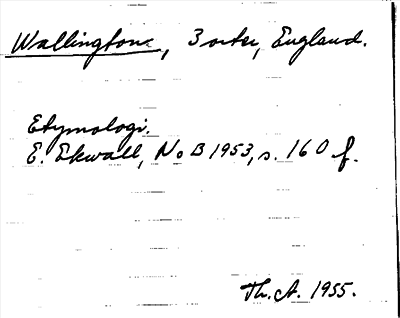 Wallington, 3 orter, England.
Etymologi.
E. Ekwall, NoB 1953, s. 160 f.
Th. A. 1955.